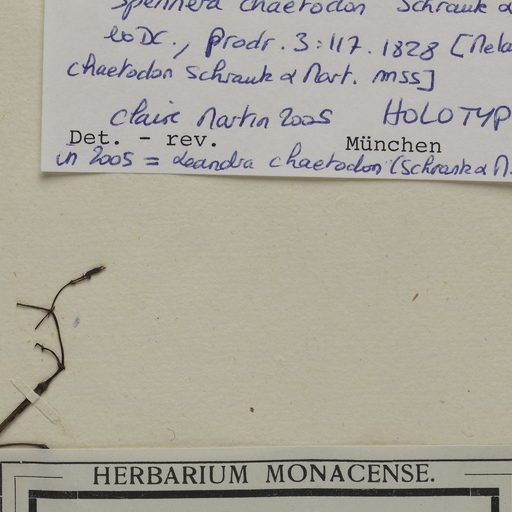 Spennera chaetodon Schrank &
ex DC., Prodr. 3:117. 1828 [Mela
chaetodon Schrank & Mart. mss]
Claire Martin 2005 HOLOTYP
Det. - rev. München
in 2005 = Leandra chaetodon (Schrank & M.
HERBARIUM MONACENSE.